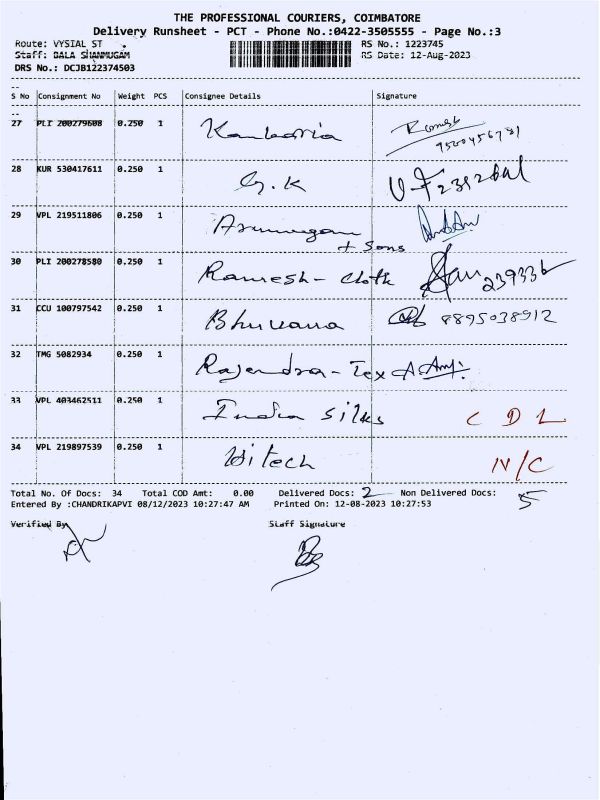 THE PROFESSIONAL COURIERS, COIMBATORE
Delivery Runsheet - PCT - Phone No.:0422-3505555 - Page No.:3
Route: VYSIAL ST RS No.: 1223745
Staff: BALA SHANMUGAM RS Date: 12-Aug-2023
DRS No.: DCJB122374503
S No Consignment No Weight PCS Consignee Details Signature
27 PLI 200279608 0.250 1
9500456781
28 KUR 530417611 0.250 1 G.K
29 VPL 219511806 0.250 1 Arumugam
+ Sons
30 PLI 200278580 0.250 1 Ramesh - cloth 239336
31 CCU 100797542 0.250 1 Bhuvana 8895038912
32 TMG 5082934 0.250 1 Rajendra - Tex
33 VPL 403462511 0.250 1 India Silks C D L
34 VPL 219897539 0.250 1 Hitech N/C
Total No. Of Docs: 34 Total COD Amt: 0.00 Delivered Docs: 2 Non Delivered Docs: 5
Entered By :CHANDRIKAPVI 08/12/2023 10:27:47 AM Printed On: 12-08-2023 10:27:53
Verified By Staff Signature